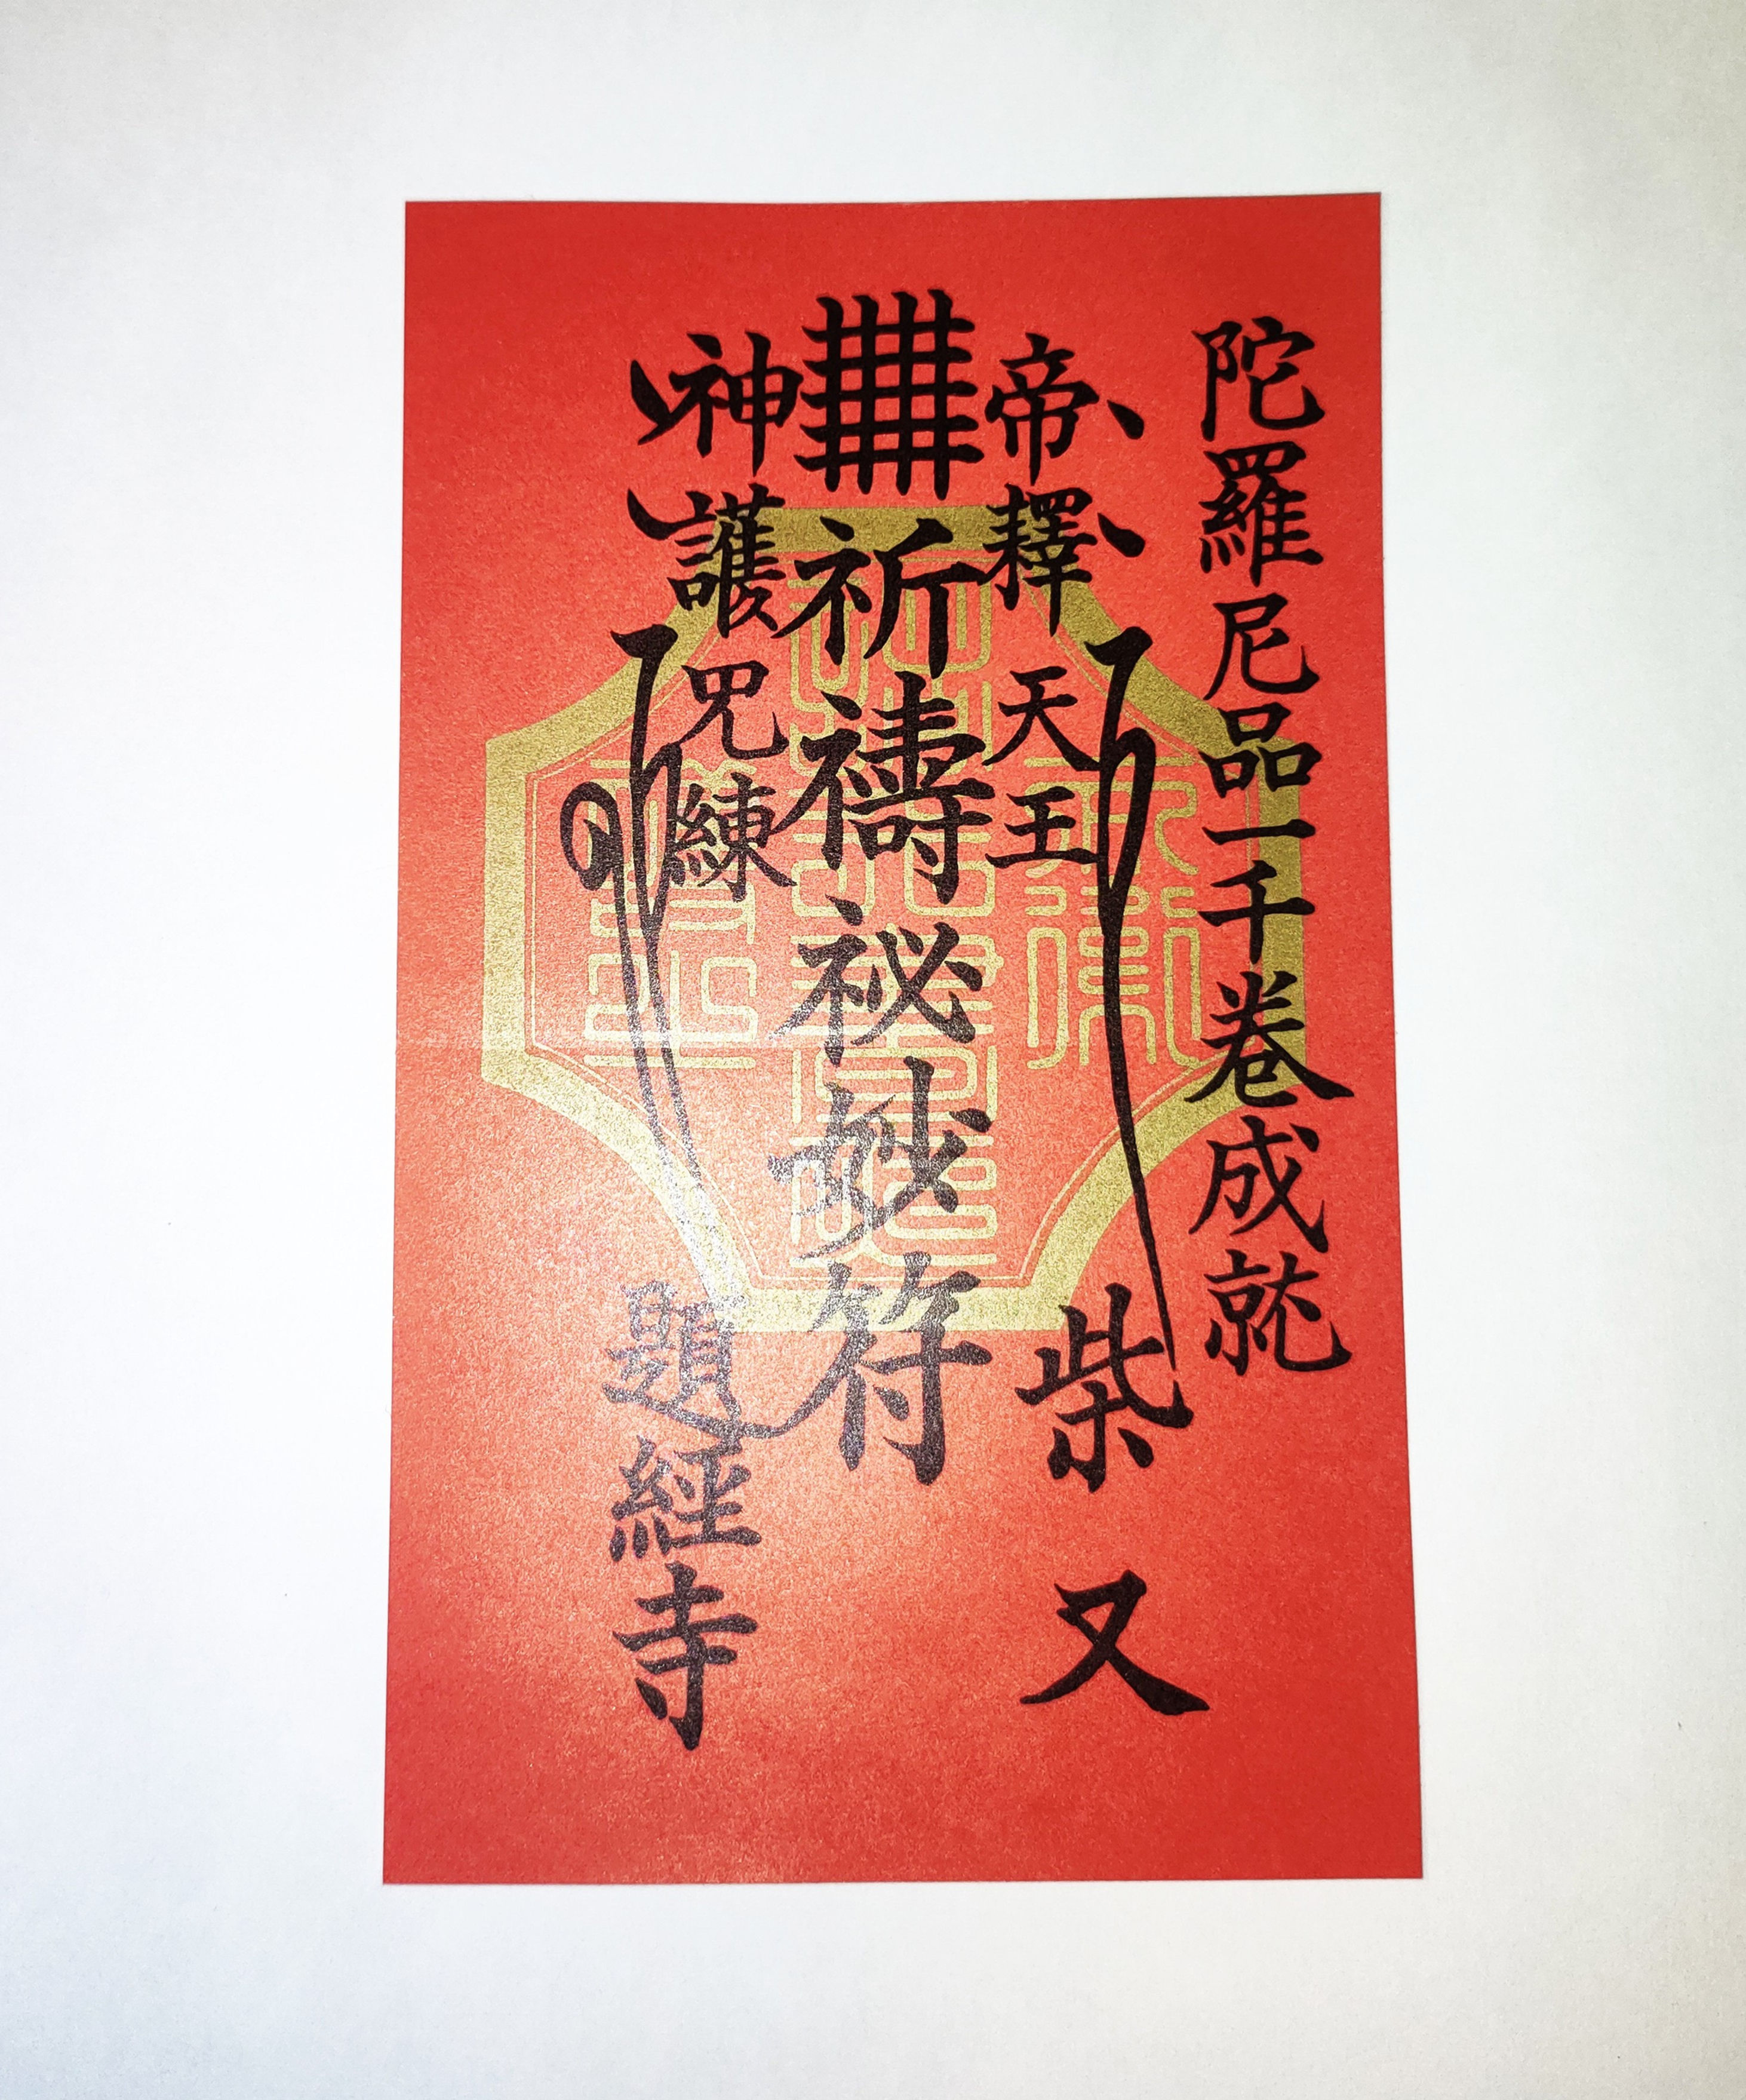 陀羅尼品一千卷成就
帝釋天王
祈禱祕妙符
神護咒練
柴又
題經寺